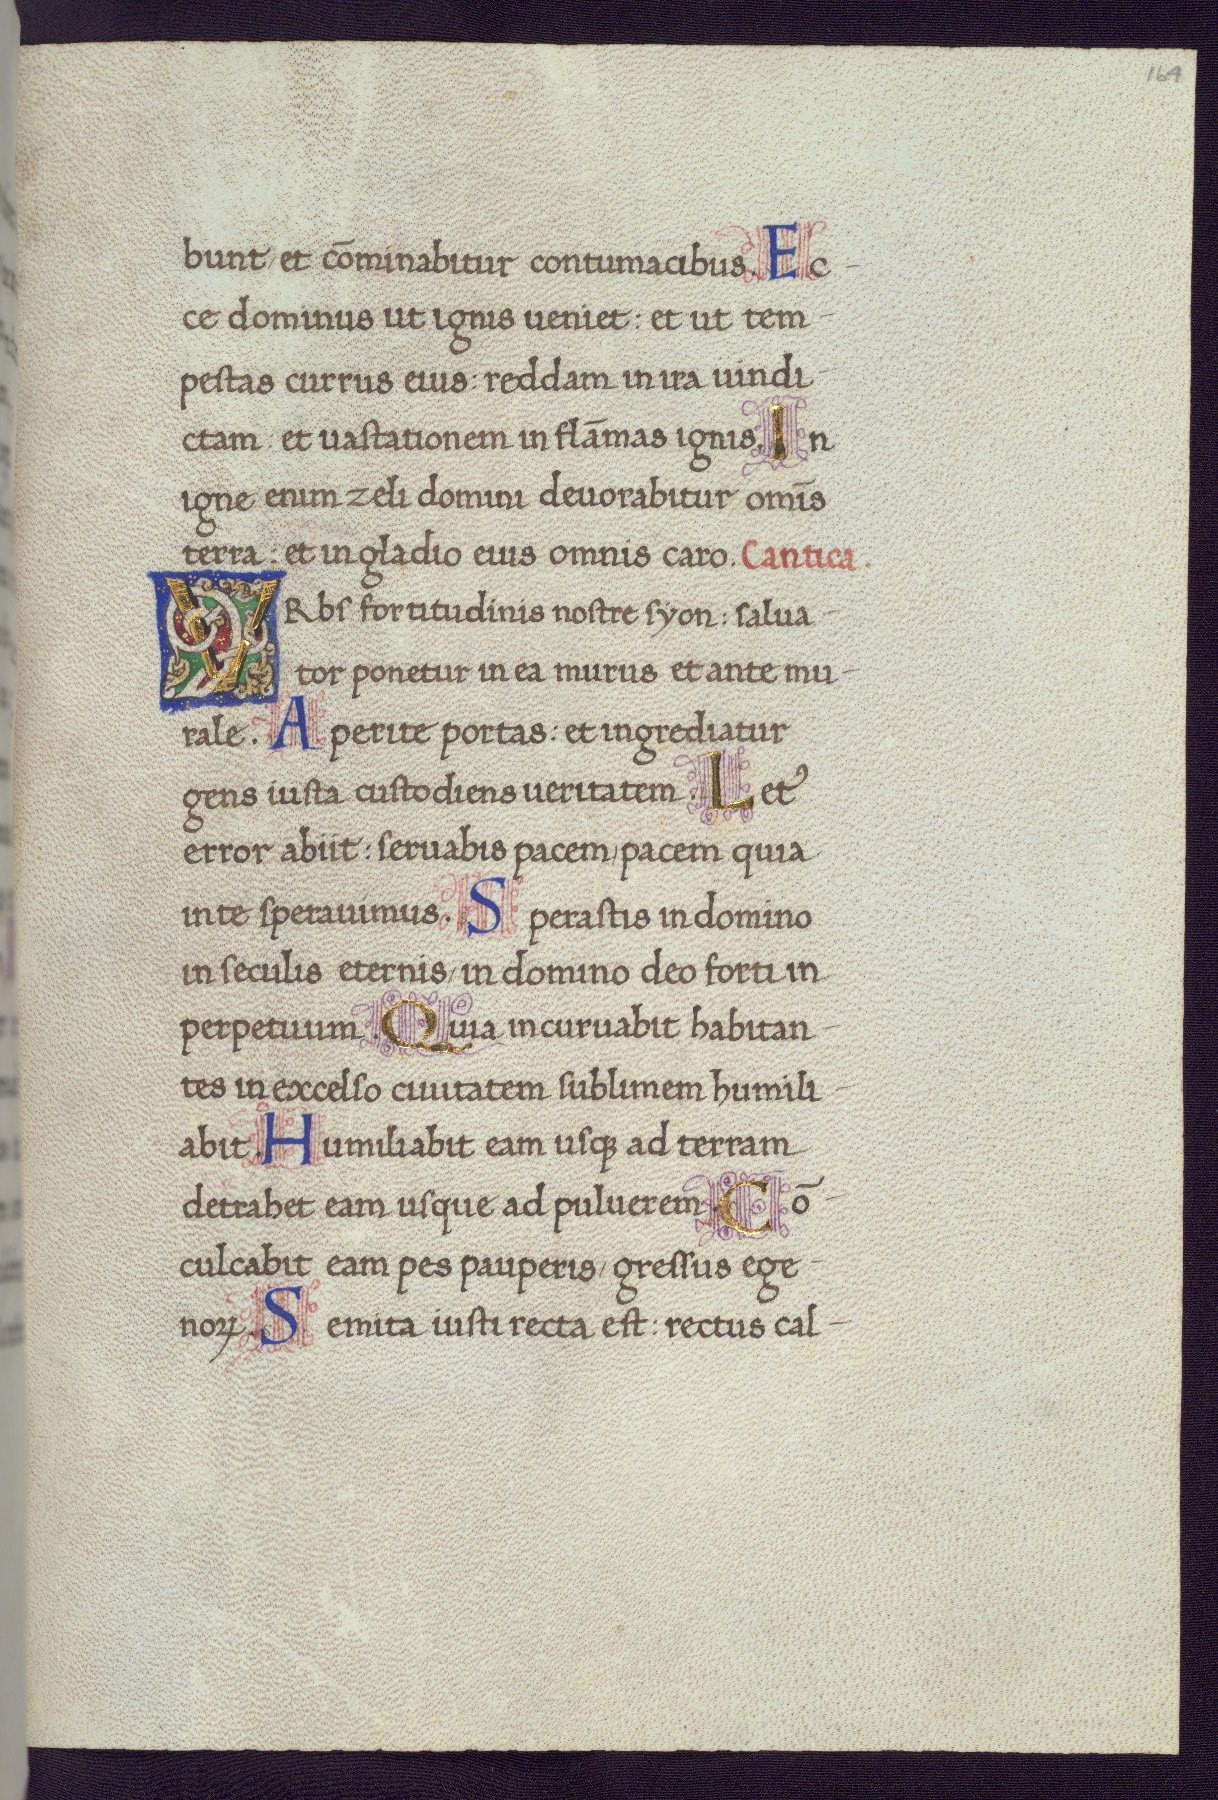 164
bunt et cōminabitur contumacibus. Ec-
ce dominus ut ignis ueniet: et ut tem-
pestas currus eius: reddam in ira uindi-
ctam: et uastationem in flāmas ignis. In
igne enim zeli domini deuorabitur om̄is
terra: et in gladio eius omnis caro. Cantica.
VRbs fortitudinis nostre syon: salua-
tor ponetur in ea murus et ante mu-
rale. Aperite portas: et ingrediatur
gens iusta custodiens ueritatem. Vet᾽
error abiit: seruabis pacem/pacem quia
in te sperauimus. Sperastis in domino
in seculis eternis/in domino deo forti in
perpetuum. Quia incuruabit habitan-
tes in excelso ciuitatem sublimem humili-
abit. Humiliabit eam usqꝫ ad terram
detrahet eam usque ad puluerem. Cō-
culcabit eam pes pauperis/gressus ege-
noꝝ. Semita iusti recta est: rectus cal-